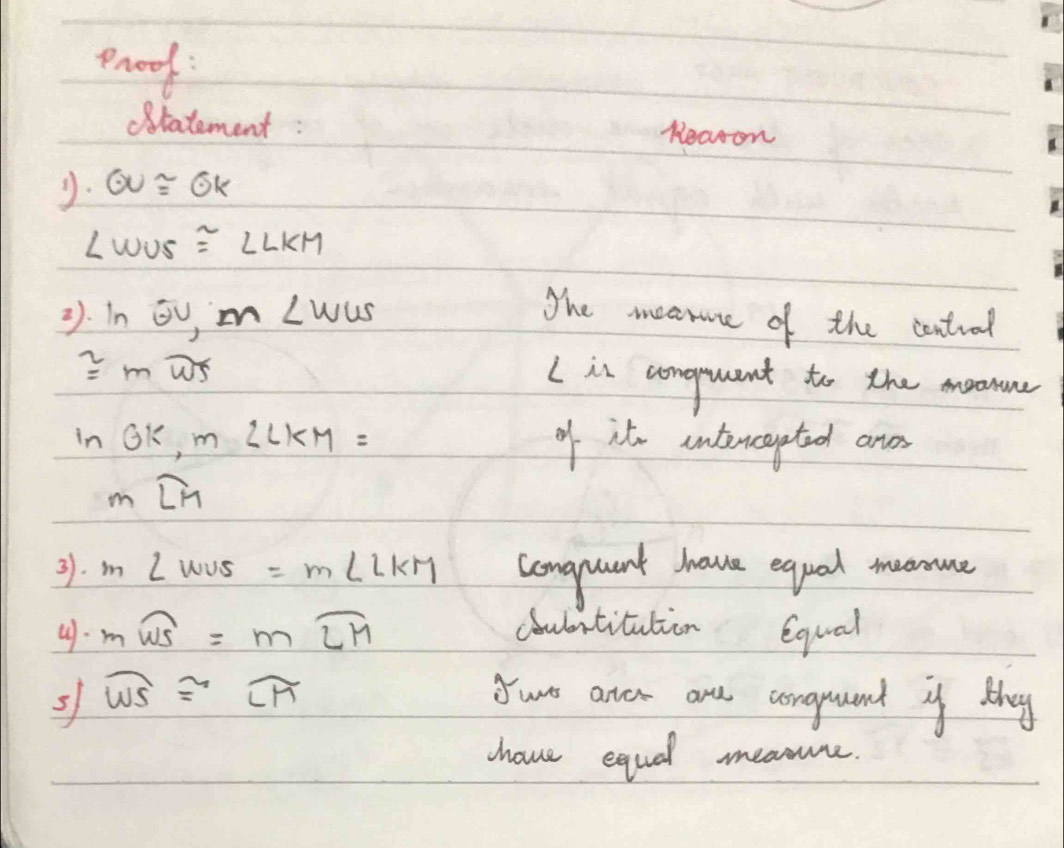 Proof:
Statement : Reason
1). ⊙U ≅ ⊙K
∠WUS ≅ ∠LKM
2). In ⊙U, m ∠WUS The measure of the central
≅ m W͡S ∠ is congruent to the measure
In ⊙K, m ∠LKM = of its intercepted arcs
m L͡M
3). m ∠WUS = m ∠LKM Congruent have equal measure
4). m W͡S = m L͡M Substitution Equal
5) W͡S ≅ L͡M Two arcs are congruent if they
have equal measure.